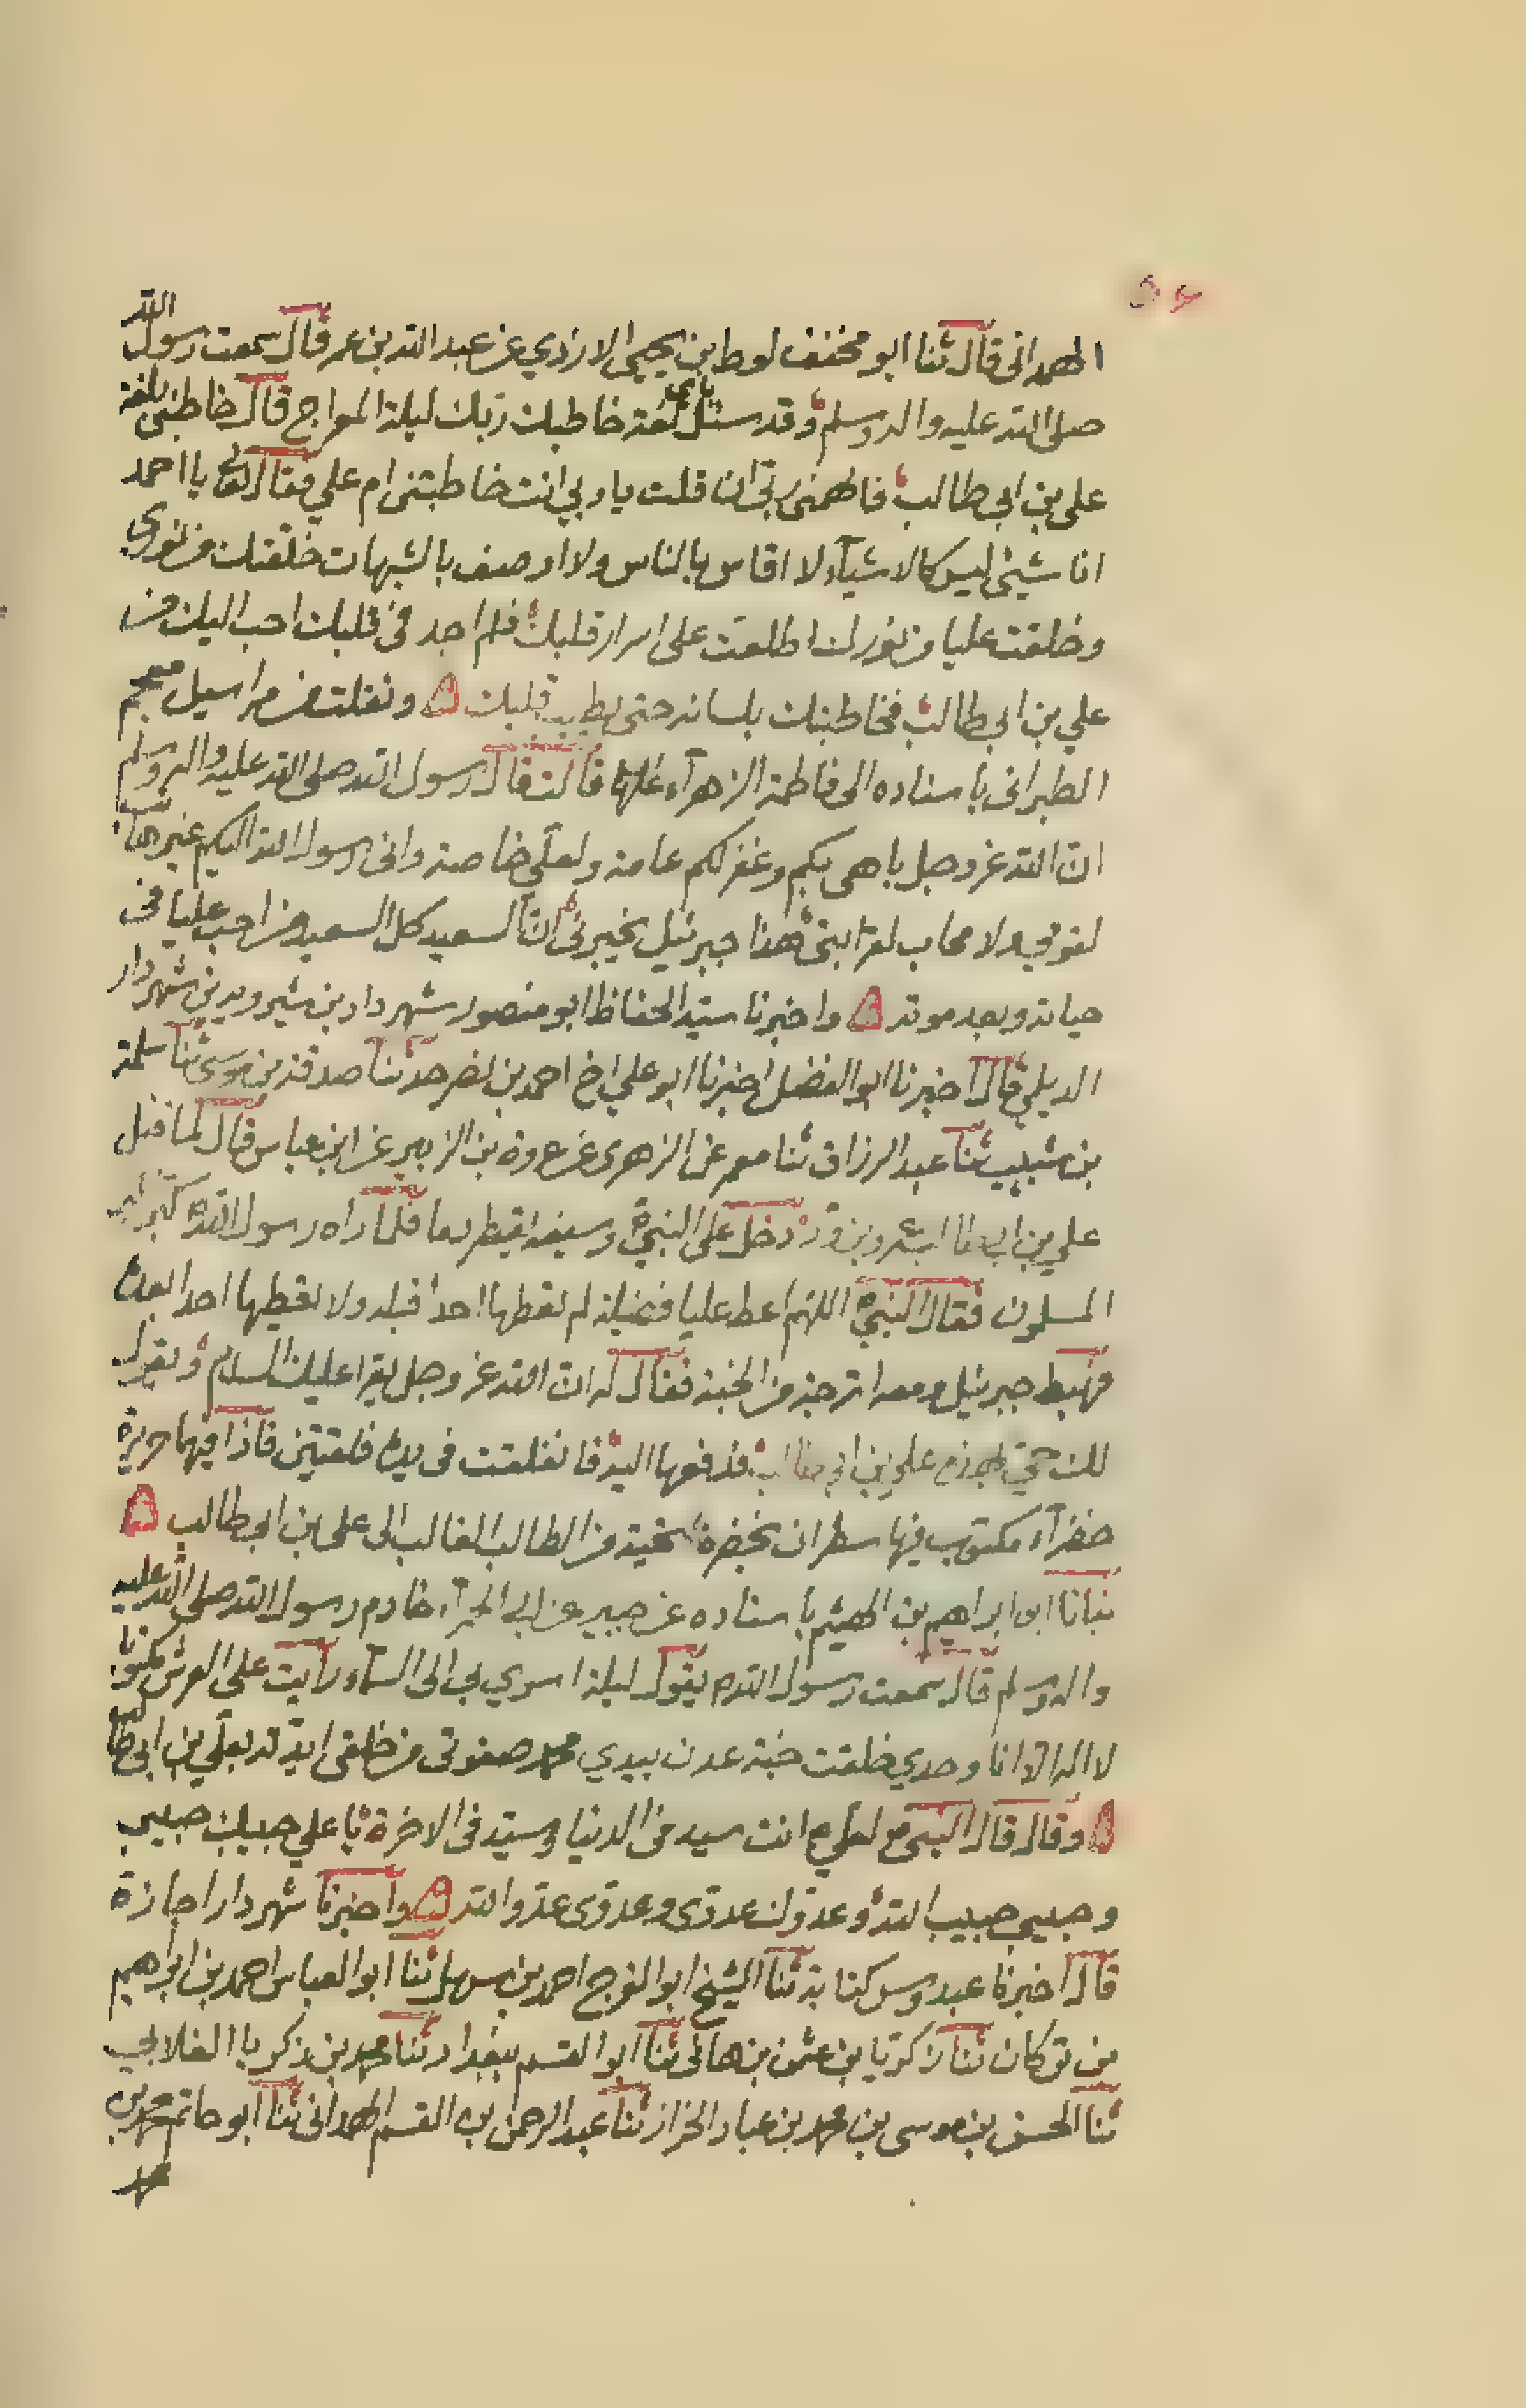 الهمدانی قال ثنا ابو مخنف لوط بن یحیی الازدي عن عبد الله بن عمر قال سمعت رسول الله
صلی الله علیه واله وسلم وقد سئل بای لغة خاطبك ربك لیلة المعراج قال خاطبنی بلغة
علی بن ابی طالب فالهمنی ربی ان قلت یا ربي انت خاطبتنی ام علي فقال یا احمد
انا شیئ لیس کالاشیآء لا اقاس بالناس ولا اوصف بالشبهات خلقتك من نوري
وخلقت علیا من نورك اطلعت علی اسرار قلبك فلم اجد فی قلبك احب الیك من
علي بن ابی طالب فخاطبتك بلسانه حتی یطیب قلبك ونقلت من مراسیل معجم
الطبرانی باسناده الی فاطمة الزهرآء علیها قالت قال رسول الله صلی الله علیه واله وسلم
ان الله عز وجل باهی بکم وغفر لکم عامة ولعلی خاصة وانی رسول الله الیکم غیر هائب
لقومی ولا محاب لقرابتی هذا جبرئیل یخبرنی ان السعید کل السعید من احب علیا فی
حیاته وبعد موته واخبرنا سید الحفاظ ابو منصور شهردار بن شیرویه بن شهردار
الدیلمي قال اخبرنا ابو الفضل اخبرنا ابو علي اخ احمد بن نصر حدثنا صدقة بن موسی ثنا سلمة
بن شبیب ثنا عبد الرزاق ثنا معمر عن الزهری عن عروة بن الزبیر عن ابن عباس قال لما قتل
علي بن ابی طا عمرو بن ود دخل علی النبي وسیفه یقطر دما فلما راه رسول الله کبر
المسلمون فقال النبي اللهم اعط علیا فضیلة لم تعطها احدا قبله ولا تعطیها احدا بعده
فهبط جبرئیل ومعه اترجة من الجنة فقال له ان الله عز وجل یقرا علیك السلام ویقول
لك حي بهذه علي بن ابی طالب فدفعها الیه فانفلقت فی یده فلقتین فاذا فیها حریرة
خضرآء مکتوب فیها سطران بخضرة تحیة من الطالب الغالب الی علی بن ابی طالب
نبانا ابو ابراهیم بن الهیثم باسناده عن جبیر عن ابی الحمرآء خادم رسول الله صلی الله علیه
واله وسلم قال سمعت رسول الله یقول لیلة اسري بی الی السمآء رایت علی العرش مکتوبا
لا اله الا انا وحدي خلقت جنة عدن بیدي محمد صفوتی من خلقی ایدته بعلي بن ابی طالب
وقال قال النبی لعلي انت سید فی الدنیا وسید فی الاخرة یا علي حبیبك حبیبي
وحبیبي حبیب الله وعدوك عدوی وعدوی عدو الله واخبرنا شهردار اجازة
قال اخبرنا عبدوس کتابة ثنا الشیخ ابو الفرج احمد بن سهل ثنا ابو العباس احمد بن ابراهیم
بن ترکان ثنا زکریا بن عثمن بن هانی ثنا ابو القسم ببغداد ثنا محمد بن زکریا الغلابي
ثنا الحسن بن موسی بن محمد بن عباد الخزاز ثنا عبد الرحمن بن القسم الهمدانی ثنا ابو حاتم محمد بن
محمد